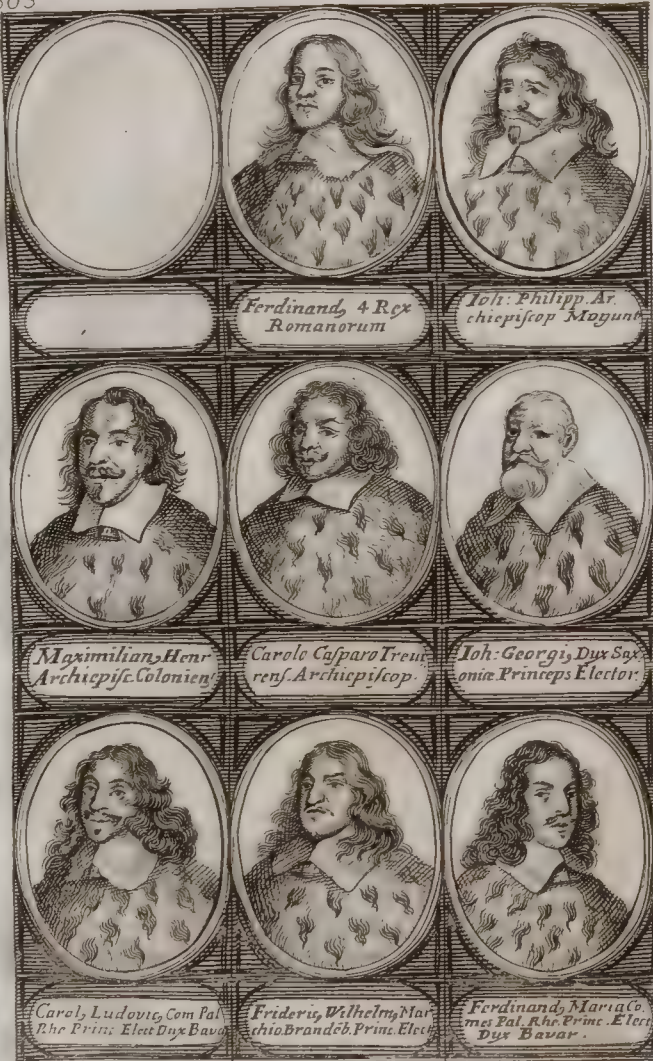 Ferdinand, 4 Rex
Romanorum
Ioh: Philipp. Ar
chiepiscop Mogunt
Maximilian, Henr
Archiepisc. Coloniens
Carolo Casparo Treui
rens. Archiepiscop.
Ioh: Georgi, Dux Sax
oniæ Princeps Elector
Carol, Ludovic, Com Pal
Rhe Princ Elect Dux Bava
Frideric, Wilhelm, Mar
chio Brandeb. Princ. Elect
Ferdinand, Maria Co
mes Pal. Rhe. Princ. Elect
Dux Bavar.